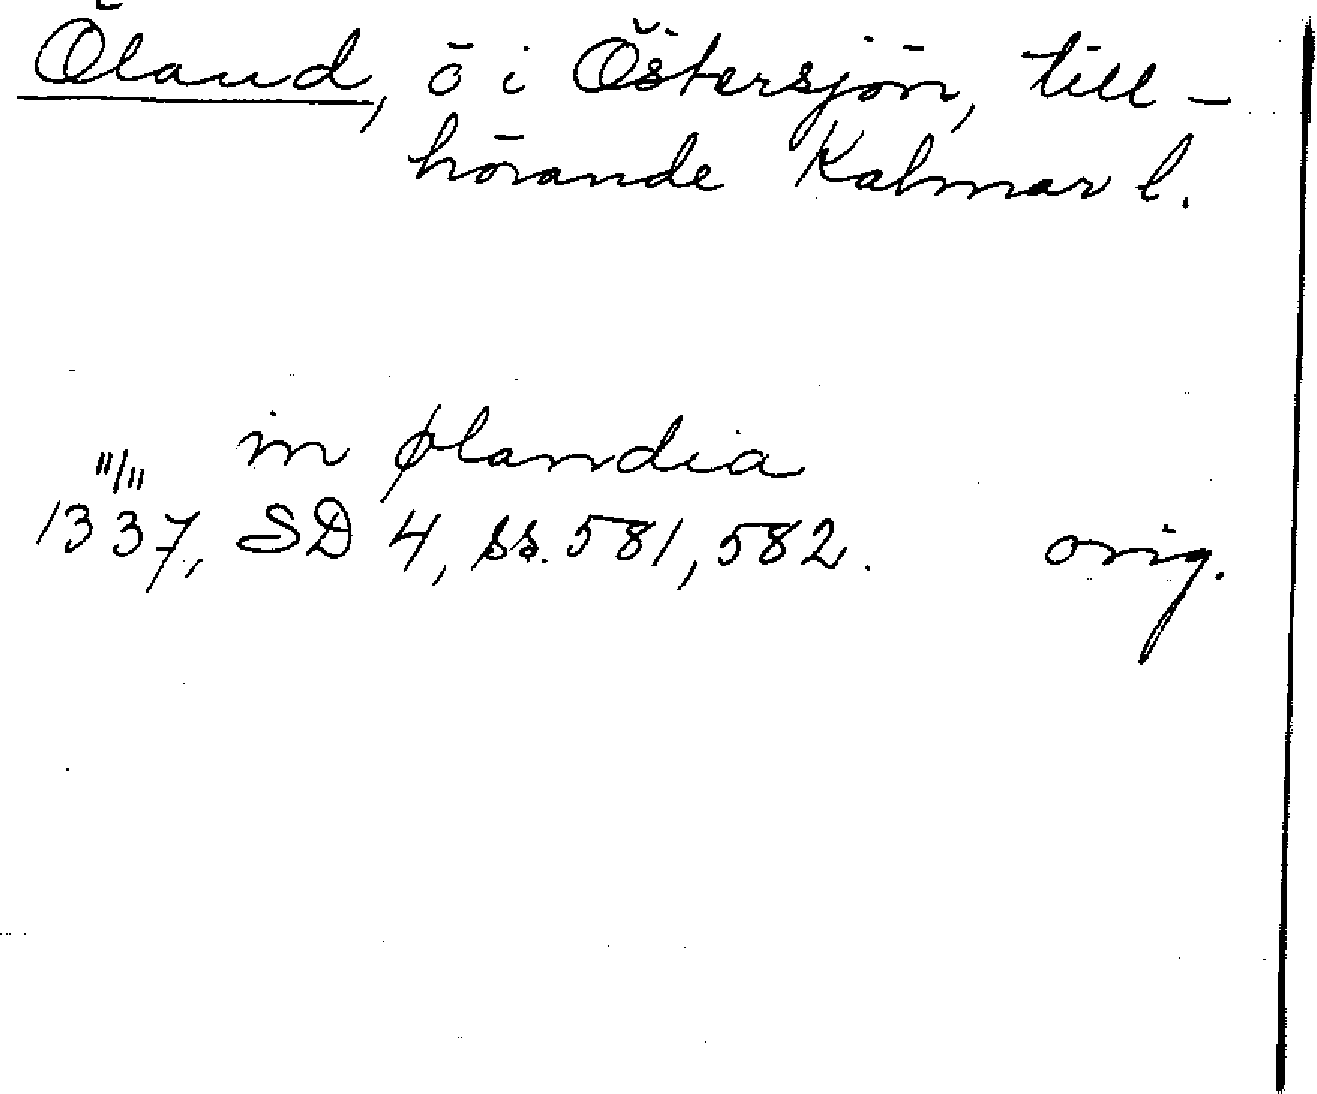 Öland, ö i Östersjön, till-
hörande Kalmar l.
in ølandia
11/11
1337, SD 4, ss. 581, 582. orig.